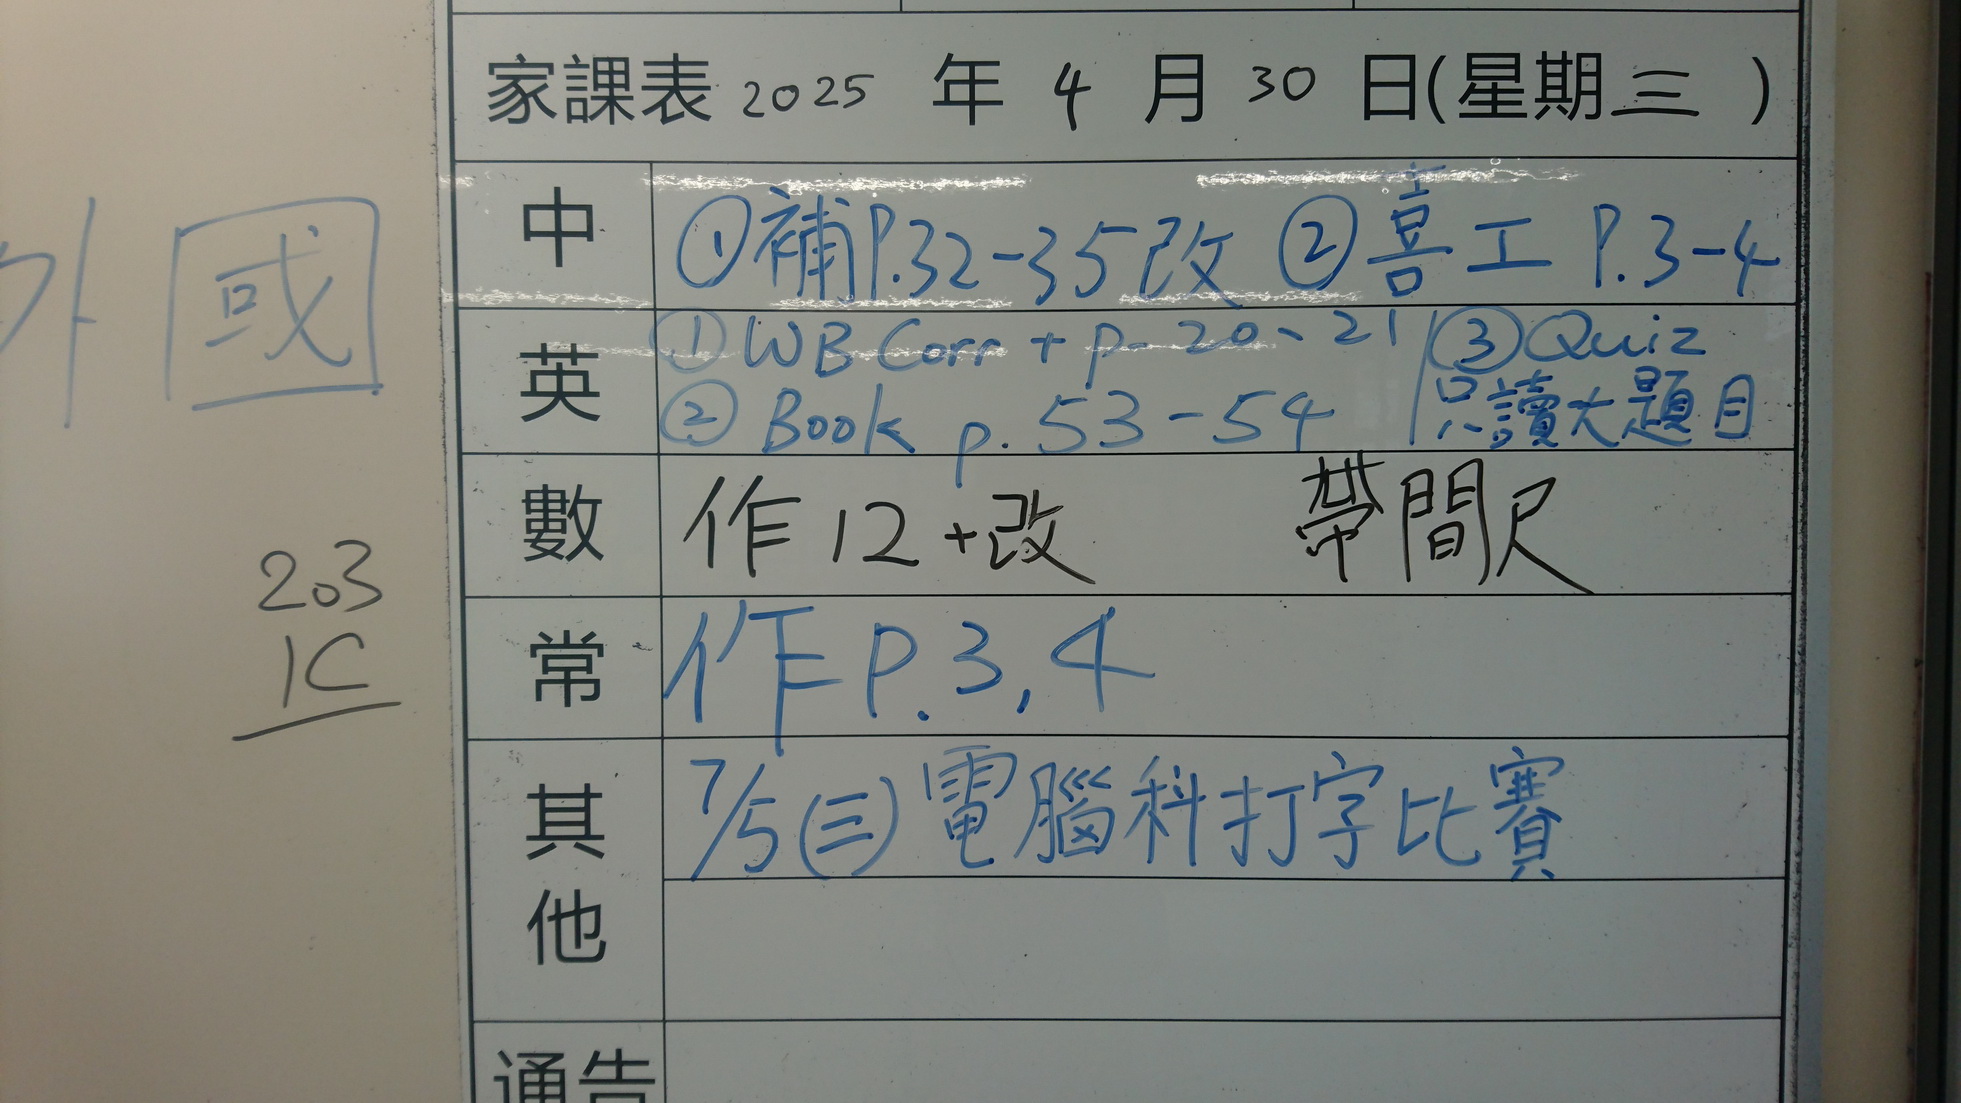 家課表 2025 年 4 月 30 日(星期三)
中 ①補P.32-35改 ②喜工 P.3-4
英 ①WB Corr + p. 20、21 ③Quiz
②Book p. 53-54 只讀大題目
數 作12+改 帶間尺
常 作P.3,4
其他 7/5(三)電腦科打字比賽
通告
外國
203
1C